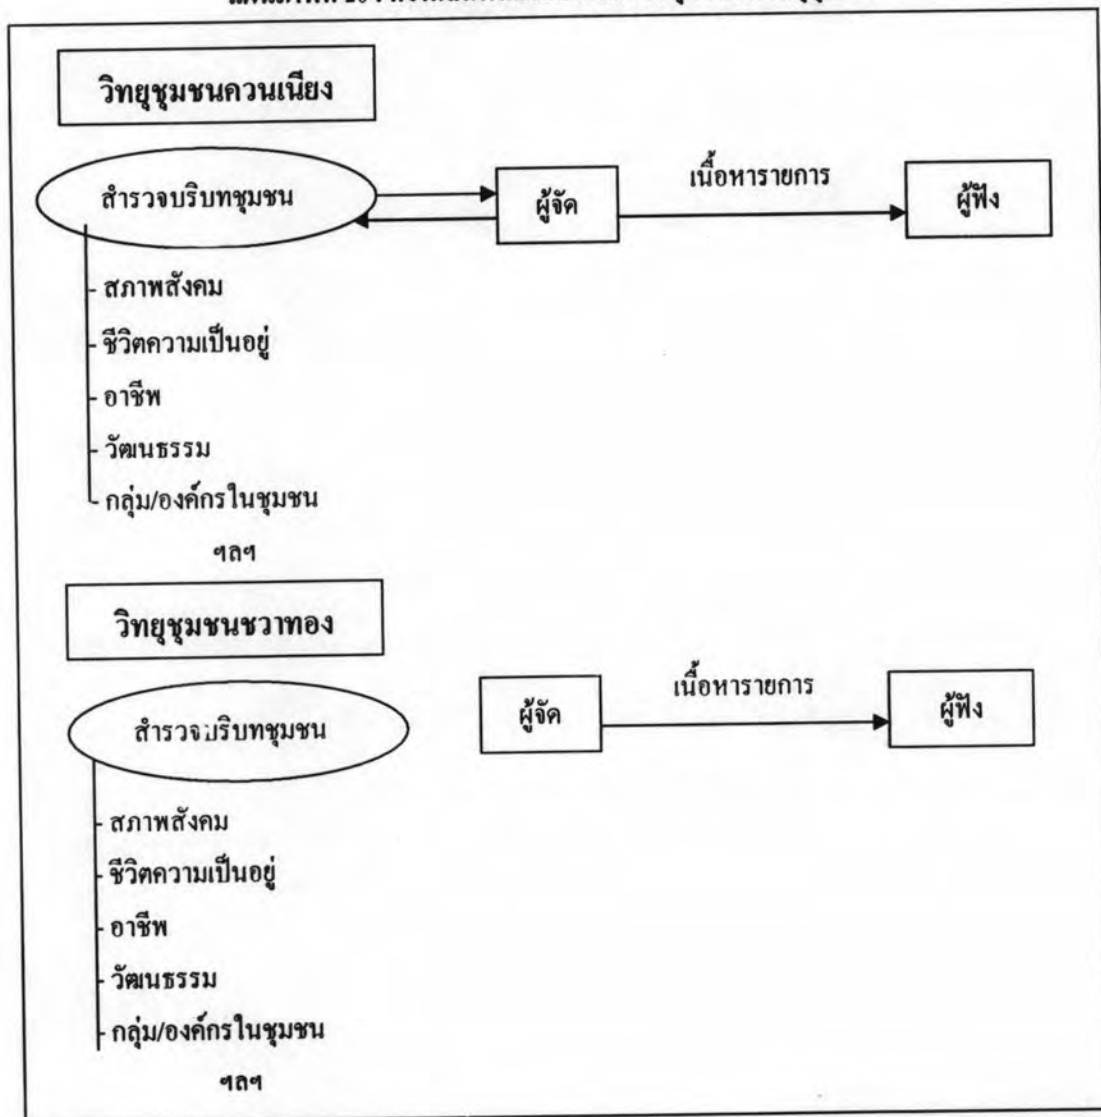 วิทยุชุมชนควนเนียง
สำรวจบริบทชุมชน
ผู้จัด
เนื้อหารายการ
ผู้ฟัง
- สภาพสังคม
- ชีวิตความเป็นอยู่
- อาชีพ
- วัฒนธรรม
- กลุ่ม/องค์กรในชุมชน
ฯลฯ
วิทยุชุมชนชวาทอง
สำรวจบริบทชุมชน
ผู้จัด
เนื้อหารายการ
ผู้ฟัง
- สภาพสังคม
- ชีวิตความเป็นอยู่
- อาชีพ
- วัฒนธรรม
- กลุ่ม/องค์กรในชุมชน
ฯลฯ